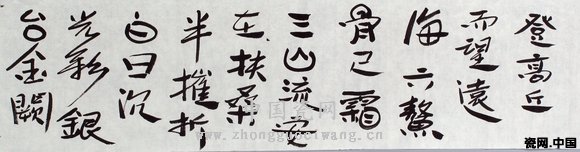 登高丘
而望遠
海六鰲
骨已霜
三山流安
在扶桑
半摧折
白日沉
光彩銀
台金闕
中国瓷网
www.zhongguociwang.cn
瓷网.中国